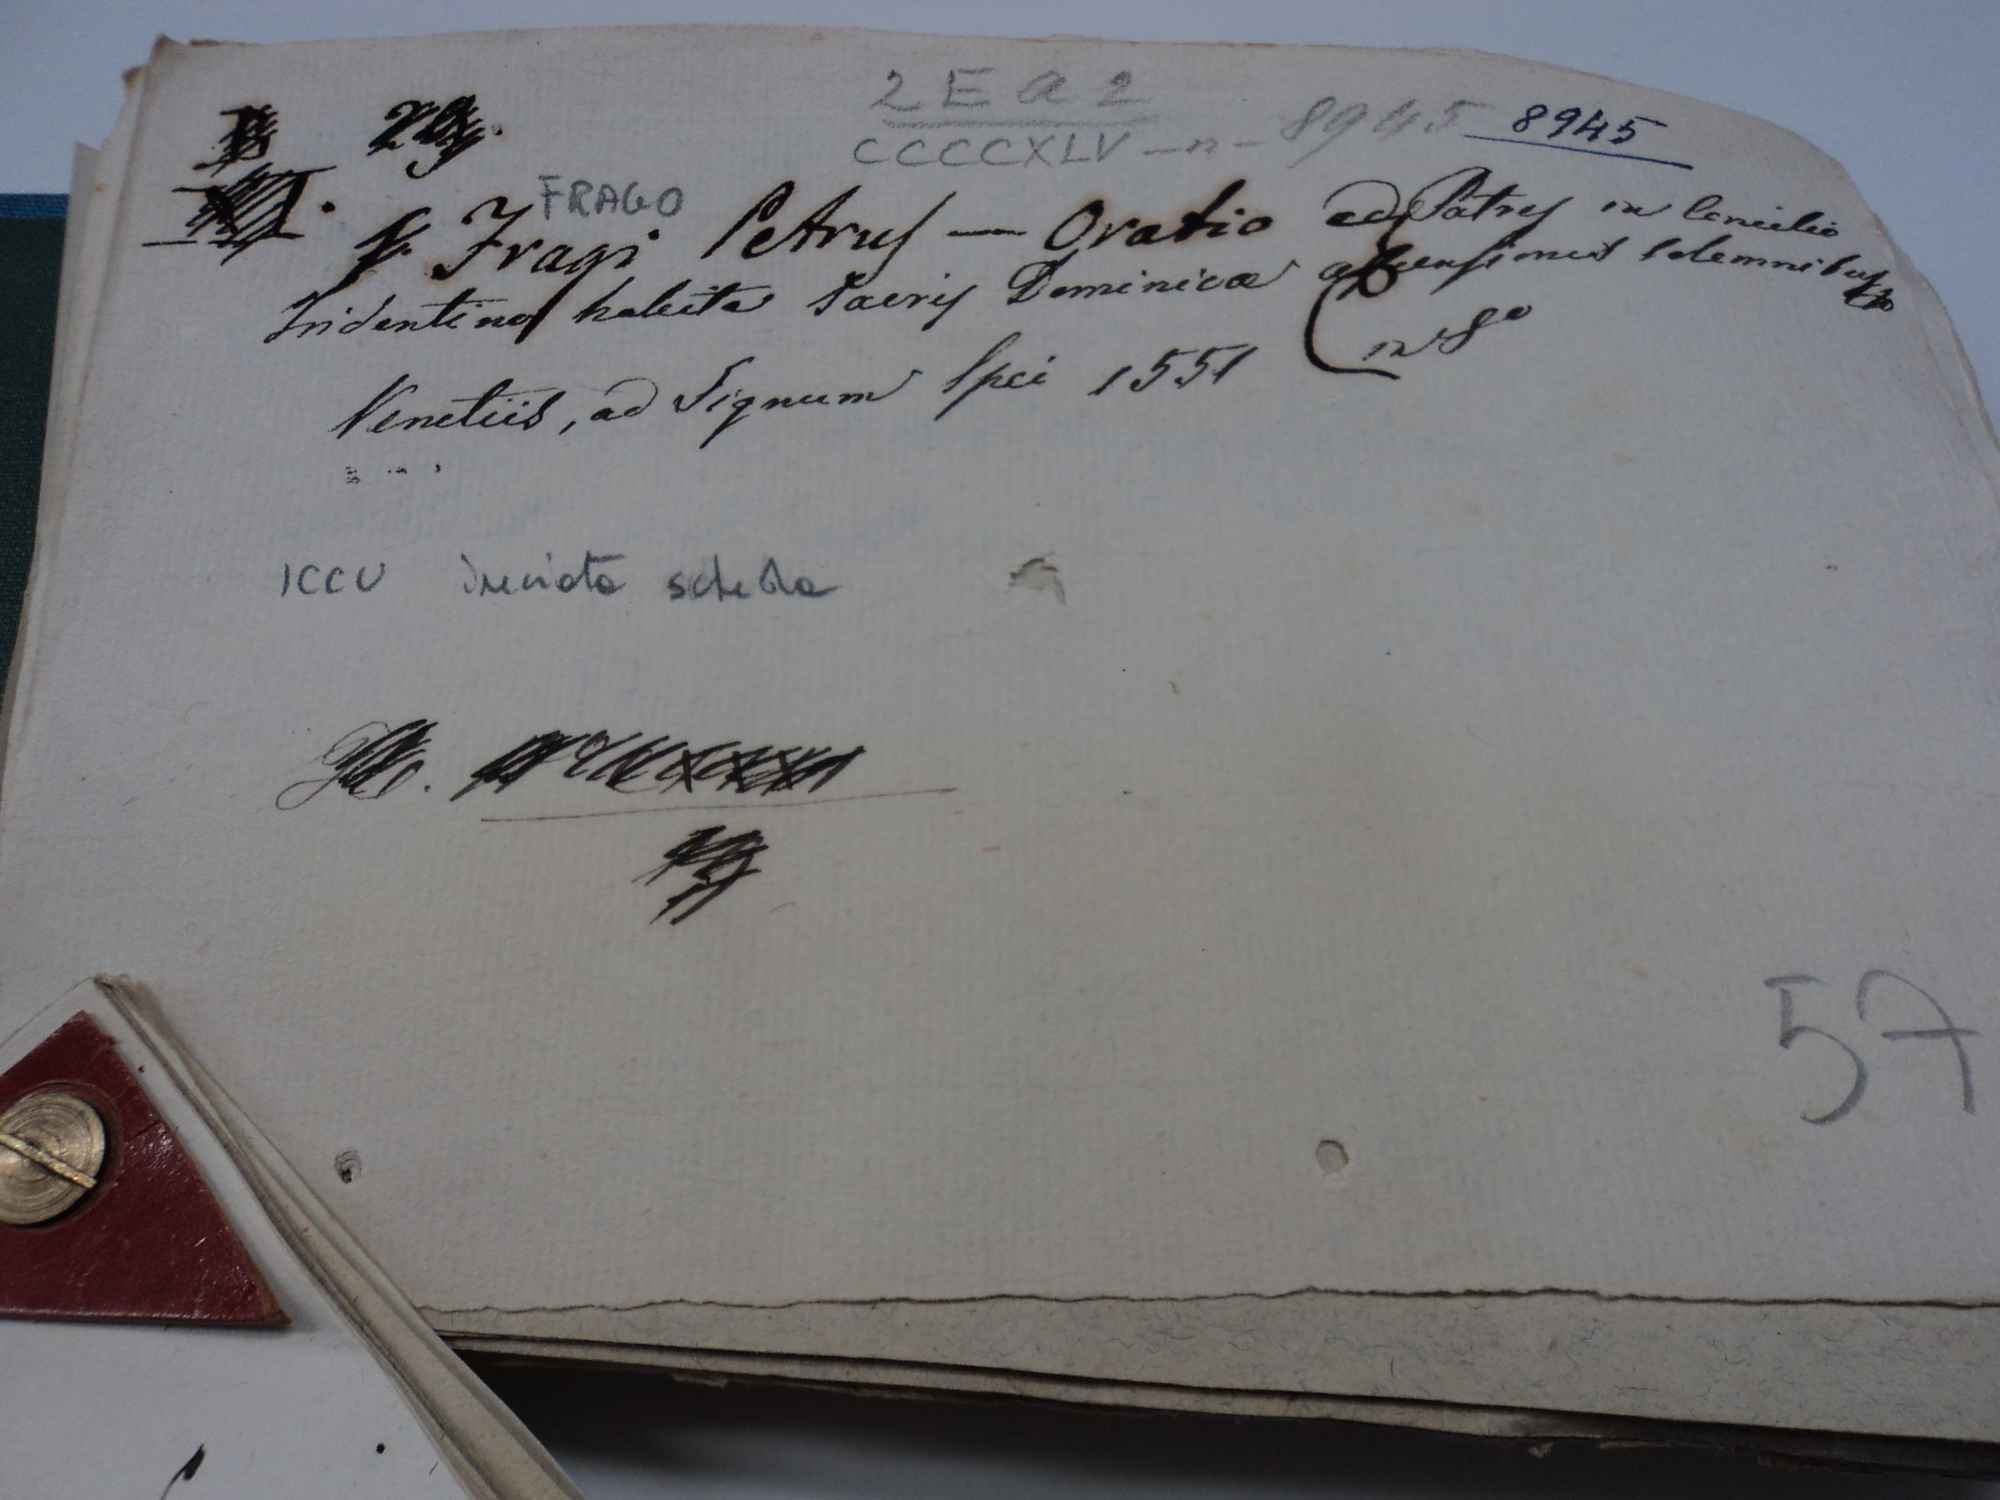 2 E a 2
CCCCXLV - n - 8945 8945
FRAGO
Fragi Petrus — Oratio ad Patres in Concilio
Tridentino habita Sacris Dominicæ ascensionis solemnibus
in 8º
Venetiis, ad Signum Spei 1551
ICCU inviata scheda
57